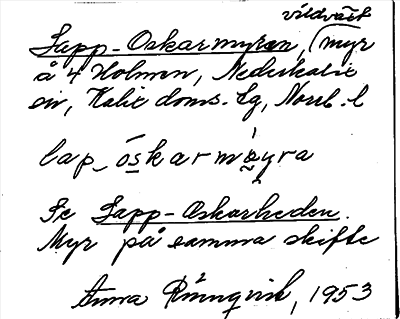 vildväxt
Lapp-Oskarmyran, (myr
å 4 Holmen, Nederkalix
sn, Kalix doms. lg, Norrb. l
lap óskarmy̆ra
Se Lapp-Oskarheden.
Myr på samma skifte
Anna Rönnqvist, 1953